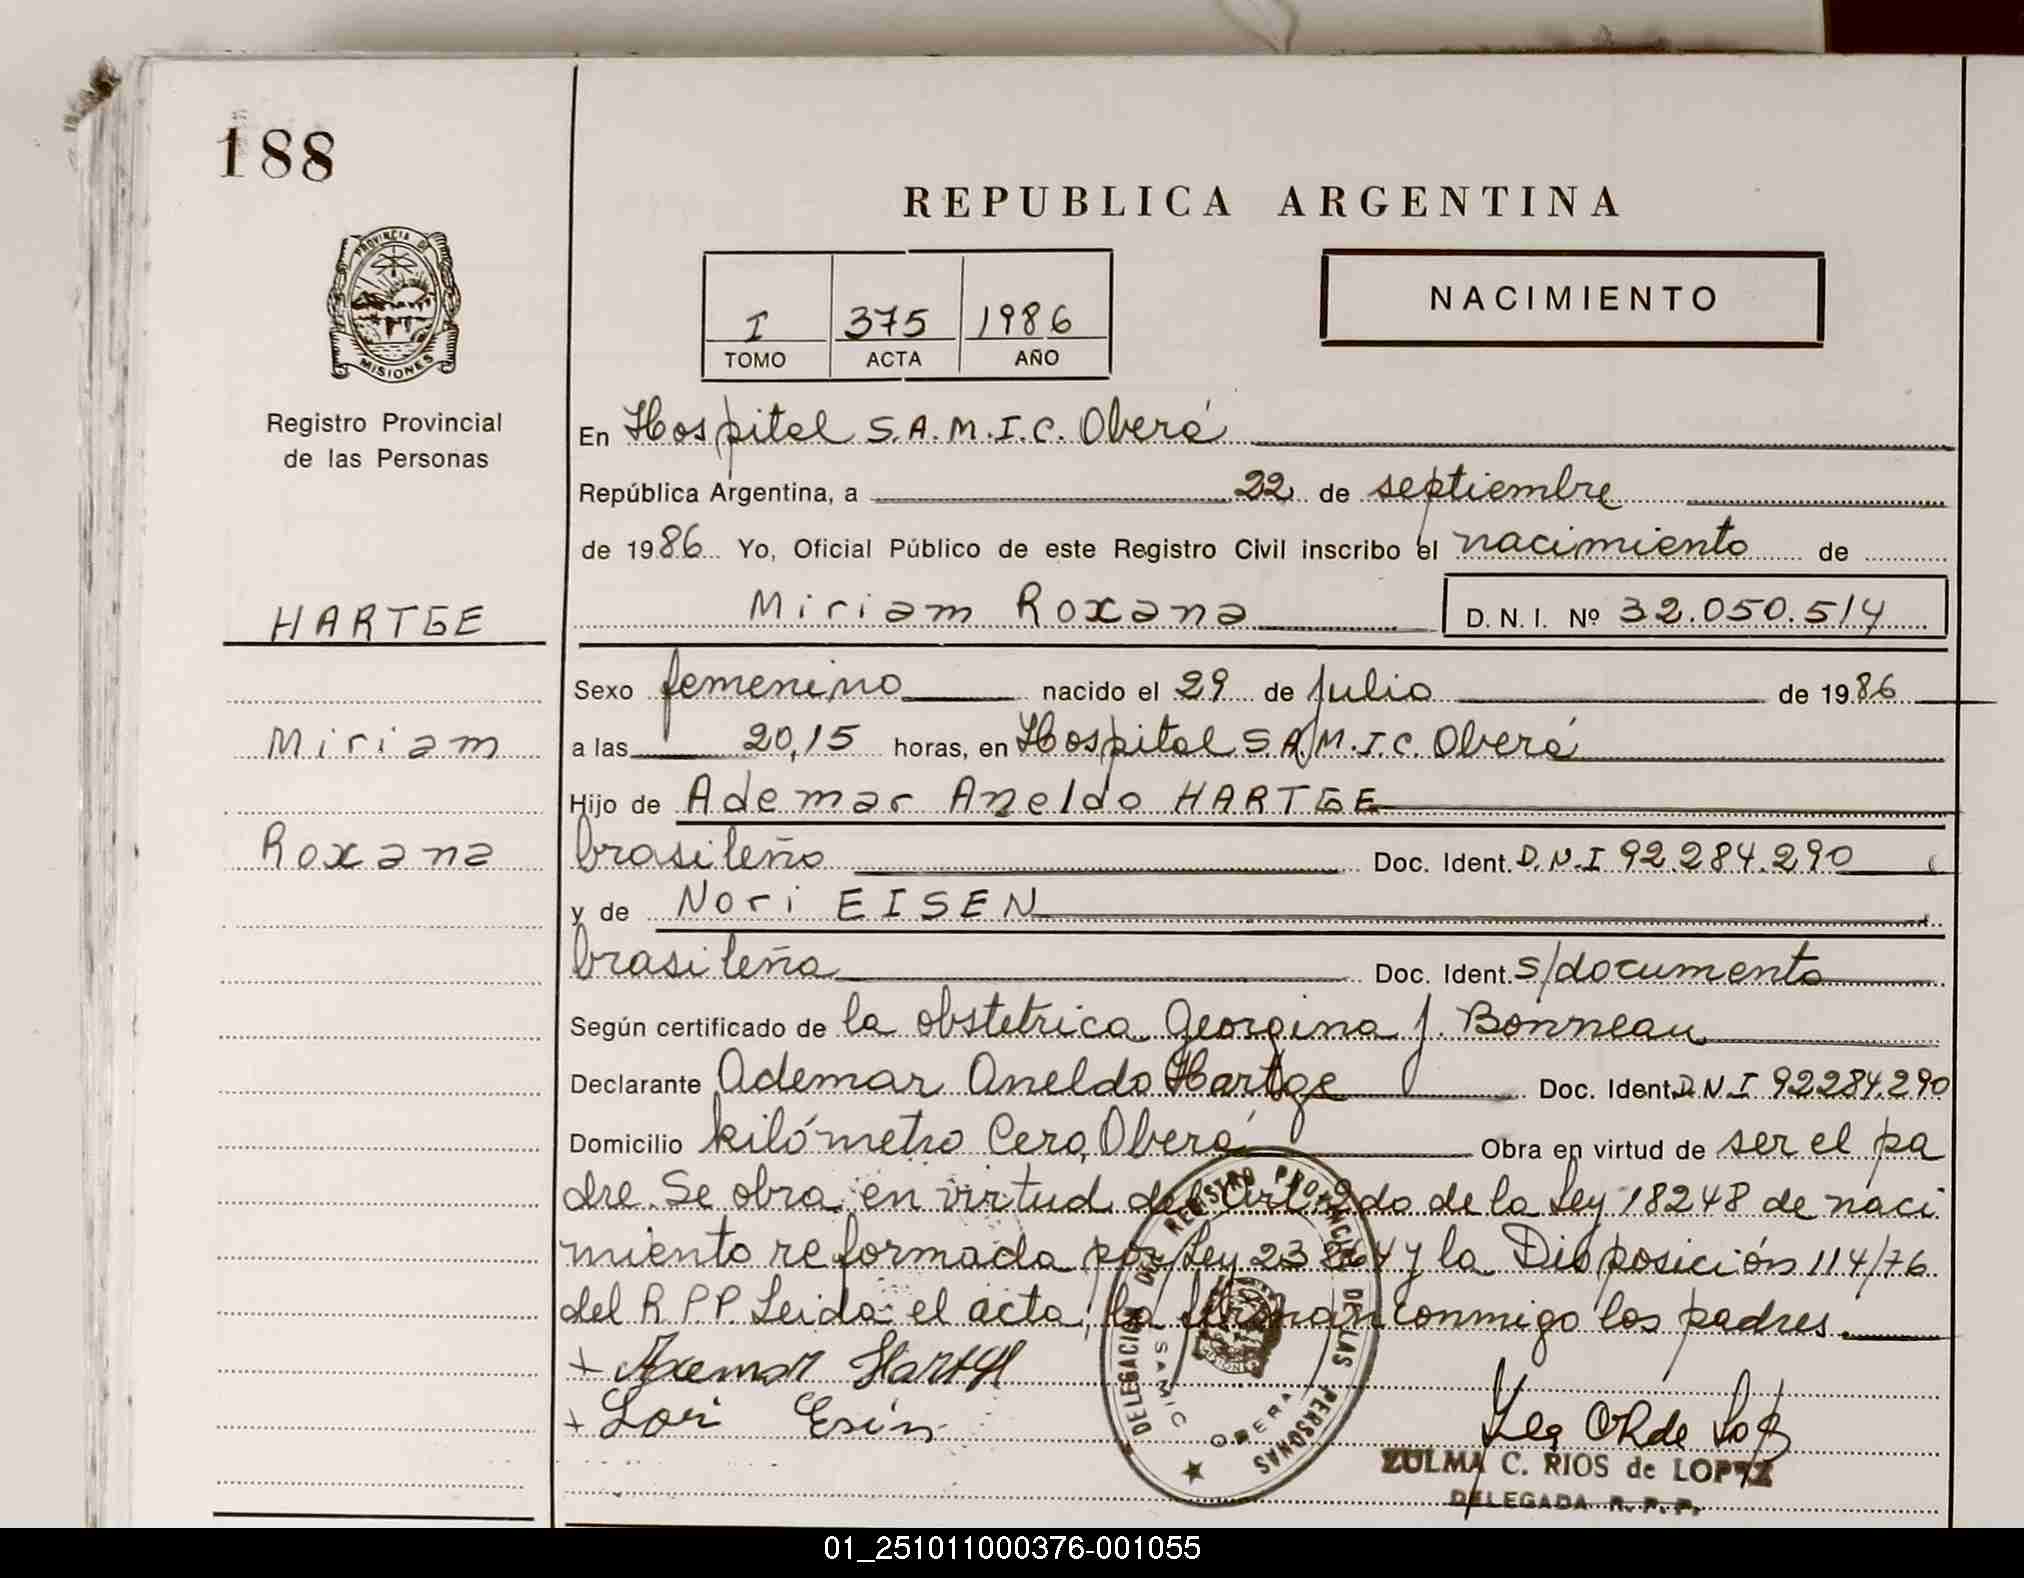 188
REPUBLICA ARGENTINA
PROVINCIA DE
MISIONES
Registro Provincial
de las Personas
I 375 1986
TOMO ACTA AÑO
NACIMIENTO
En Hospital S.A.M.I.C. Oberá
República Argentina, a 22 de septiembre
de 1986 Yo, Oficial Público de este Registro Civil inscribo el nacimiento de
HARTGE
Miriam Roxana D. N. I. Nº 32.050.514
Sexo femenino nacido el 29 de julio de 1986
Miriam
a las 20,15 horas, en Hospital S.A.M.I.C. Oberá
Hijo de Ademar Aneldo HARTGE
Roxana
brasileño Doc. Ident. D.N.I 92.284.290
y de Nori EISEN
brasileña Doc. Ident. s/documento
Según certificado de la obstetrica Georgina J. Bonneau
Declarante Ademar Aneldo Hartge Doc. Ident. D.N.I 92284.290
Domicilio kilómetro Cero, Oberá Obra en virtud de ser el pa
dre. Se obra en virtud del Art. 2do de la Ley 18248 de naci
miento reformada por Ley 23264 y la Disposición 114/76
del R.P.P. Leida el acta, la firman conmigo los padres.
+ Axemar Hartge
+ Lori Esin
DELEGACION DEL REGISTRO PROVINCIAL DE LAS PERSONAS
SAMIC OBERA
ZULMA C. RIOS de LOPEZ
DELEGADA R. P. P.
01_251011000376-001055